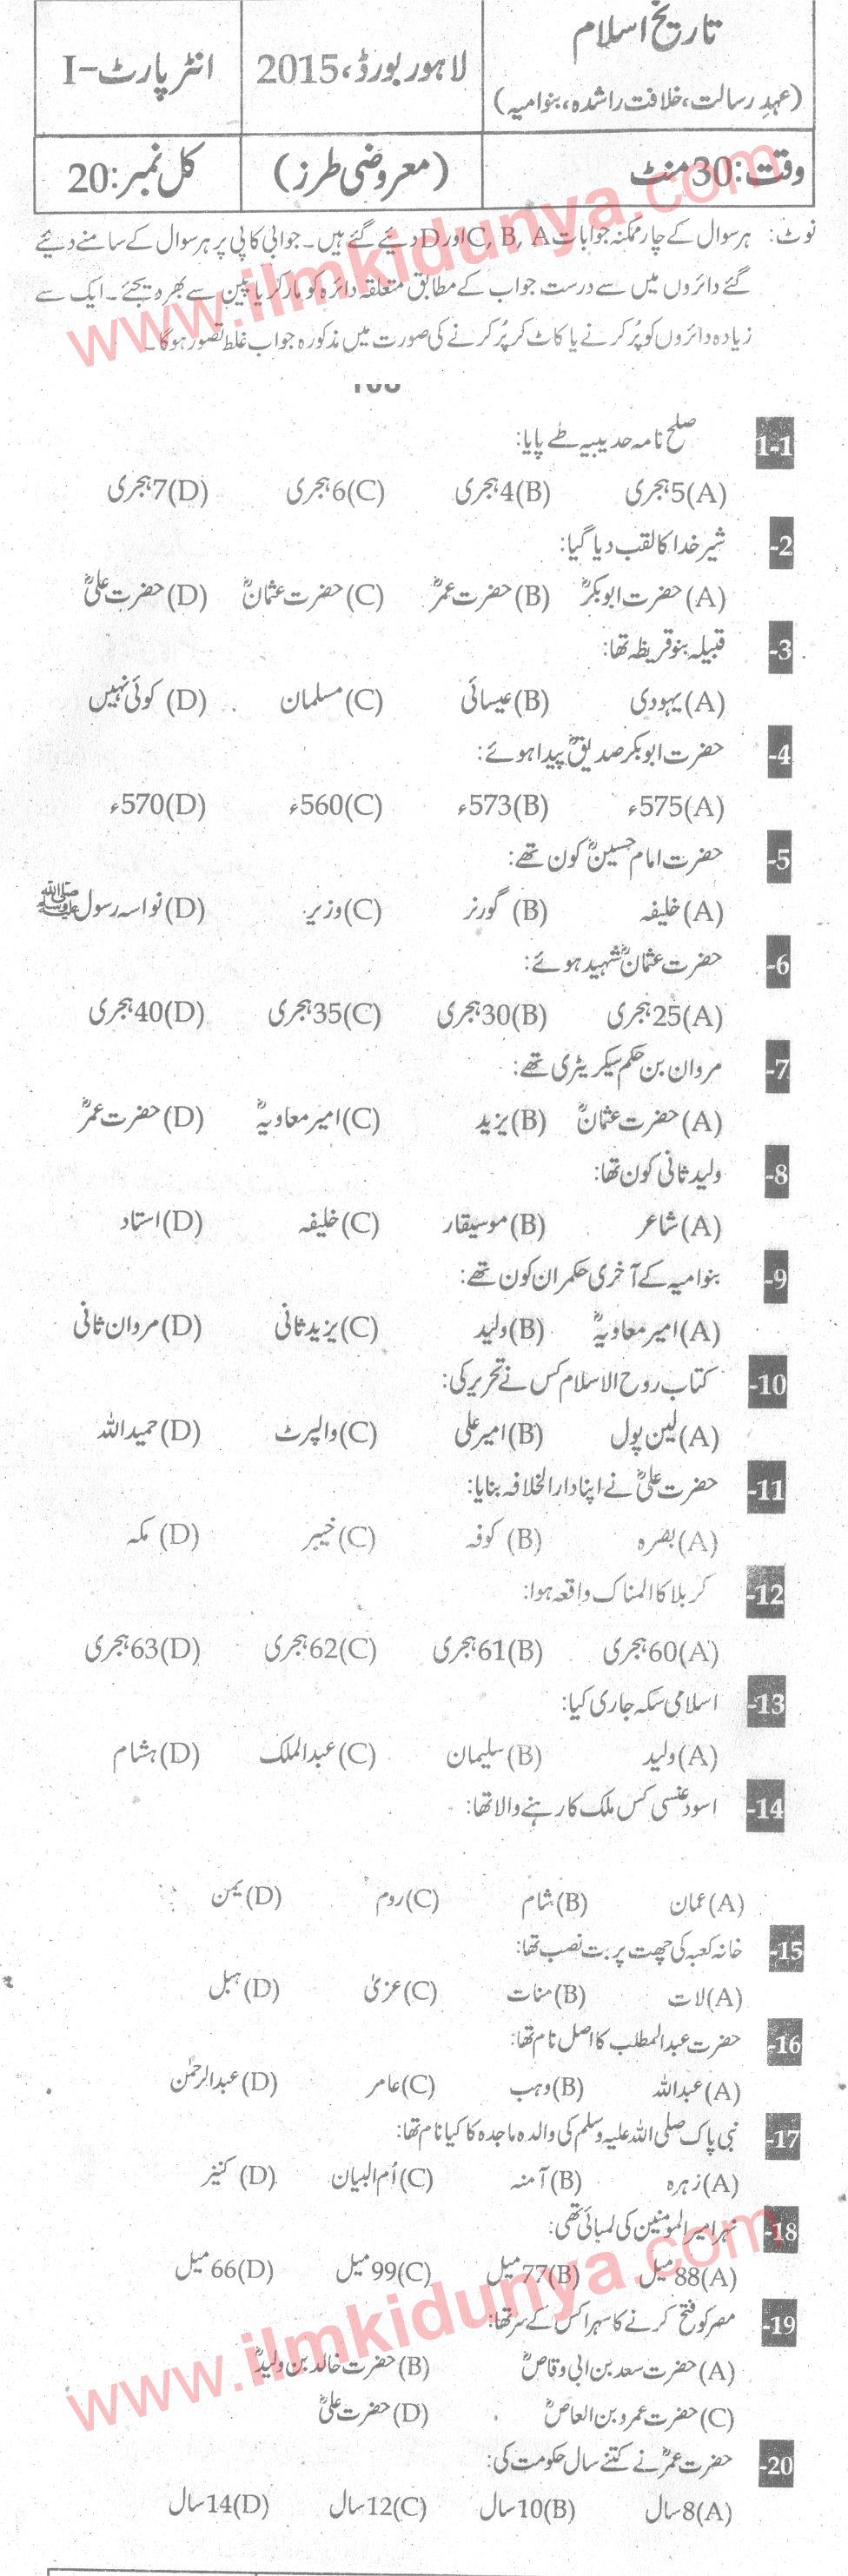 تاریخ اسلام
(عہدِ رسالت، خلافت راشدہ، بنوامیہ)
لاہور بورڈ، 2015
انٹر پارٹ-I
وقت: 30 منٹ
(معروضی طرز)
کل نمبر: 20
نوٹ: ہر سوال کے چار ممکنہ جوابات C, B, A اور D دیئے گئے ہیں۔ جوابی کاپی پر ہر سوال کے سامنے دیئے
گئے دائروں میں سے درست جواب کے مطابق متعلقہ دائرہ کو مارکر یا پین سے بھر دیجئے۔ ایک سے
زیادہ دائروں کو پُر کرنے یا کاٹ کر پُر کرنے کی صورت میں مذکورہ جواب غلط تصور ہوگا۔
www.ilmkidunya.com
1-1 صلح نامہ حدیبیہ طے پایا:
(A) 5 ہجری (B) 4 ہجری (C) 6 ہجری (D) 7 ہجری
-2 شیر خدا کا لقب دیا گیا:
(A) حضرت ابوبکرؓ (B) حضرت عمرؓ (C) حضرت عثمانؓ (D) حضرت علیؓ
-3 قبیلہ بنو قریظہ تھا:
(A) یہودی (B) عیسائی (C) مسلمان (D) کوئی نہیں
-4 حضرت ابوبکر صدیقؓ پیدا ہوئے:
(A) 575ء (B) 573ء (C) 560ء (D) 570ء
-5 حضرت امام حسینؓ کون تھے:
(A) خلیفہ (B) گورنر (C) وزیر (D) نواسہ رسول ﷺ
-6 حضرت عثمانؓ شہید ہوئے:
(A) 25 ہجری (B) 30 ہجری (C) 35 ہجری (D) 40 ہجری
-7 مروان بن حکم سیکریٹری تھے:
(A) حضرت عثمانؓ (B) یزید (C) امیر معاویہؓ (D) حضرت عمرؓ
-8 ولید ثانی کون تھا:
(A) شاعر (B) موسیقار (C) خلیفہ (D) استاد
-9 بنو امیہ کے آخری حکمران کون تھے:
(A) امیر معاویہؓ (B) ولید (C) یزید ثانی (D) مروان ثانی
-10 کتاب روح الاسلام کس نے تحریر کی:
(A) لین پول (B) امیر علی (C) والپرٹ (D) حمید اللہ
-11 حضرت علیؓ نے اپنا دارالخلافہ بنایا:
(A) بصرہ (B) کوفہ (C) خیبر (D) مکہ
-12 کربلا کا المناک واقعہ ہوا:
(A) 60 ہجری (B) 61 ہجری (C) 62 ہجری (D) 63 ہجری
-13 اسلامی سکہ جاری کیا:
(A) ولید (B) سلیمان (C) عبدالملک (D) ہشام
-14 اسود عنسی کس ملک کا رہنے والا تھا:
(A) عمان (B) شام (C) روم (D) یمن
-15 خانہ کعبہ کی چھت پر بت نصب تھا:
(A) لات (B) منات (C) عزیٰ (D) ہبل
-16 حضرت عبدالمطلب کا اصل نام تھا:
(A) عبداللہ (B) وہب (C) عامر (D) عبدالرحمٰن
-17 نبی پاک صلی اللہ علیہ وسلم کی والدہ ماجدہ کا کیا نام تھا:
(A) زہرہ (B) آمنہ (C) اُم البیان (D) کنیز
-18 نہر امیر المومنین کی لمبائی تھی:
(A) 88 میل (B) 77 میل (C) 99 میل (D) 66 میل
-19 مصر کو فتح کرنے کا سہرا کس کے سر تھا:
(A) حضرت سعد بن ابی وقاصؓ (B) حضرت خالد بن ولیدؓ
(C) حضرت عمرو بن العاصؓ (D) حضرت علیؓ
www.ilmkidunya.com
-20 حضرت عمرؓ نے کتنے سال حکومت کی:
(A) 8 سال (B) 10 سال (C) 12 سال (D) 14 سال